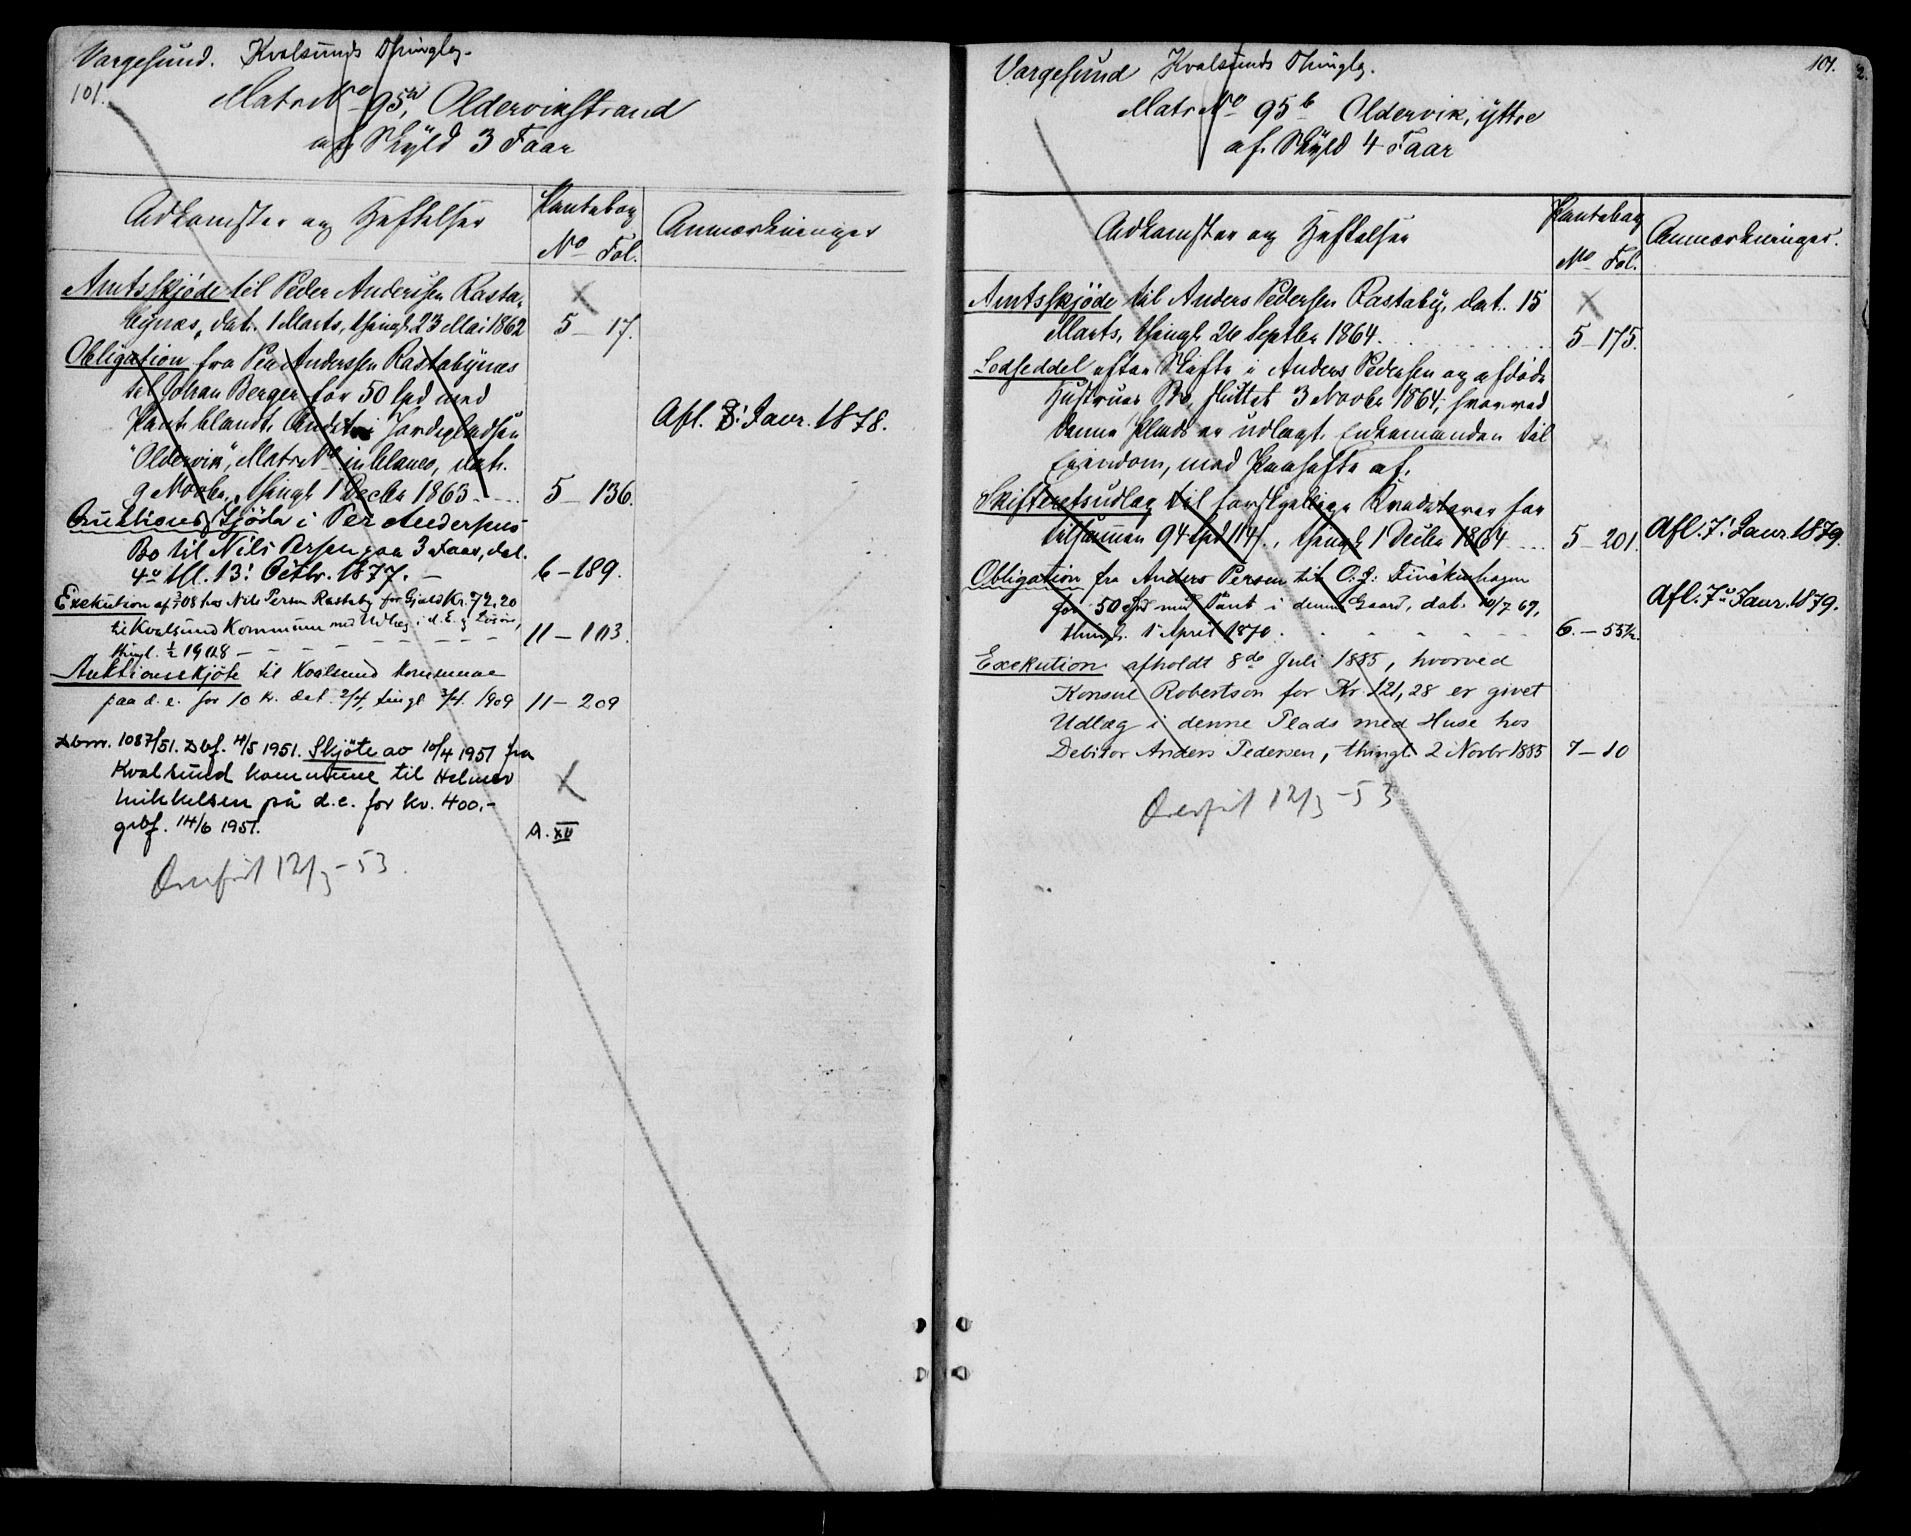 Vargesund. Kvalsunds Thinglag.
101.
Matr No 95a, Oldervikstrand
af Skyld 3 Faar
Adkomster og Heftelser
Pantebog
No Fol.
Anmærkninger
Amtsskjöde til Peder Anderssen Rasta-
bynæs, dat. 1 Marts, thingl. 23 Mai 1862
5 - 17.
Obligation fra Per Anderssen Rastabynæs
til Johan Berger for 50 Spd med
Pant blandt Andet i Jordepladsen
"Oldervik", Matr No in blanco, dat.
9 Novbr., thingl. 1 Decbr 1863
5 - 136.
Afl. 8! Janr. 1878.
Auktions Skjöde i Per Anderssens
Bo til Nils Persen paa 3 Faar, dat.
4de tgl. 13! Octbr. 1877. -
6 - 189.
Exekution af 3/7 08 hos Nils Persen Rastaby for Gjæld Kr. 72,20
til Kvalsund Kommune med Udlæg i d. E. og Lösöre,
thingl. 1/2 1908 -
11 - 103.
Auktionsskjöte til Kvalsund Kommune
paa d. e. for 10 kr. dat. 2/4, tingl 3/4. 1909
11 - 209
Dbnr. 1087/51. Dbf. 4/5 1951. Skjöte av 10/4 1951 fra
Kvalsund kommune til Helmer
Mikkelsen på d.e. for kr. 400,-
grbf. 14/6 1951.
A. XII
Overfört 12/3 - 53.
Vargesund Kvalsunds Thinglag.
101.
2.
Matr No 95b Oldervik, yttre
af Skyld 4 Faar
Adkomster og Heftelser
Pantebog
No Fol.
Anmærkninger.
Amtsskjöde til Anders Pedersen Rastaby, dat. 15
Marts, thingl 26 Septbr 1864.
5 - 175.
Lodseddel efter Skifte i Anders Pedersen og afdöde
Hustrues Bo, sluttet 3 Novbr 1864, hvorved
denne Plads er udlagt Enkemanden til
Eiendom, med Paahefte af.
Skifteretsudlæg til forskjellige Kreditorer for
tilsammen 94 Spd 114 s., thingl. 1 Decbr 1864
5 - 201.
Afl. 7! Janr. 1879.
Obligation fra Anders Persen til O. J. Finckenhagen
for 50 Spd med Pant i denne Gaard, dat. 10/7 69,
thingl. 1 April 1870.
6. - 55 1/2.
Afl. 7de Janr. 1879.
Exekution afholdt 8de Juli 1885, hvorved
Konsul Robertson for Kr 121,28 er givet
Udlæg i denne Plads med Huse hos
Debitor Anders Pedersen, thingl 2 Novbr 1885
7 - 10
Overfört 12/3 - 53